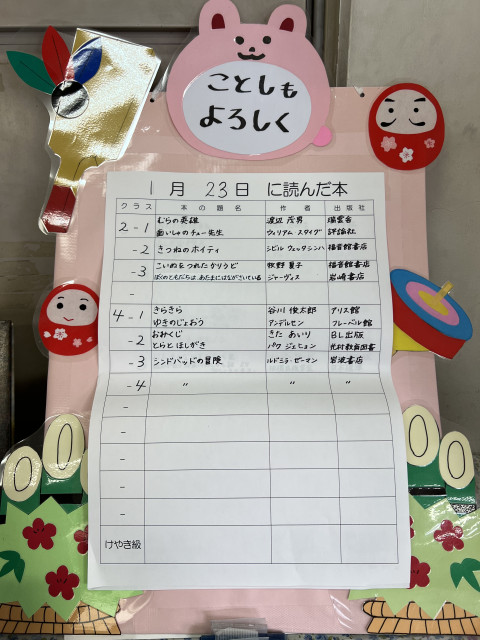 ことしも
よろしく
1月23日 に読んだ本
クラス 本の題名 作者 出版社
2-1 むらの英雄 渡辺茂男 瑞雲舎
歯いしゃのチュー先生 ウィリアム スタイグ 評論社
-2 きつねのホイティ シビル ウェッタシンハ 福音館書店
-3 こいぬをつれたかりうど 牧野 夏子 福音館書店
ぼくのともだちは、あたまにはながさいている ジャーヴィス 岩崎書店
-
4-1 きらきら 谷川 俊太郎 アリス館
ゆきのじょおう アンデルセン フレーベル館
-2 おみくじ きたあいり BL出版
とらとほしがき パク ジェヒョン 光村教育図書
-3 シンドバッドの冒険 ルドミラ・ゼーマン 岩波書店
-4 〃 〃 〃
-
-
-
-
-
けやき級